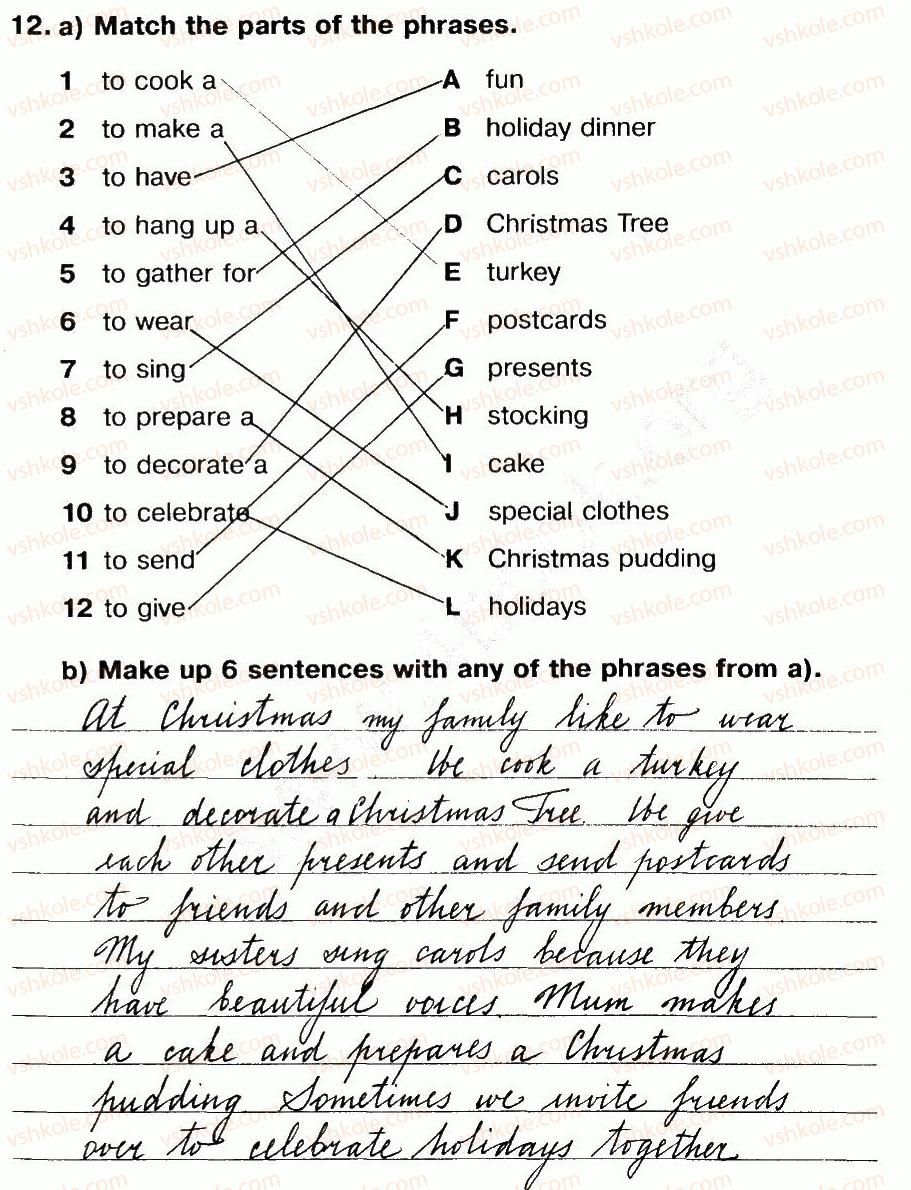 12. a) Match the parts of the phrases.
1 to cook a A fun
2 to make a B holiday dinner
3 to have C carols
4 to hang up a D Christmas Tree
5 to gather for E turkey
6 to wear F postcards
7 to sing G presents
8 to prepare a H stocking
9 to decorate a I cake
10 to celebrate J special clothes
11 to send K Christmas pudding
12 to give L holidays
b) Make up 6 sentences with any of the phrases from a).
At Christmas my family like to wear
special clothes. We cook a turkey
and decorate a Christmas Tree. We give
each other presents and send postcards
to friends and other family members.
My sisters sing carols because they
have beautiful voices. Mum makes
a cake and prepares a Christmas
pudding. Sometimes we invite friends
over to celebrate holidays together.
vshkole.com